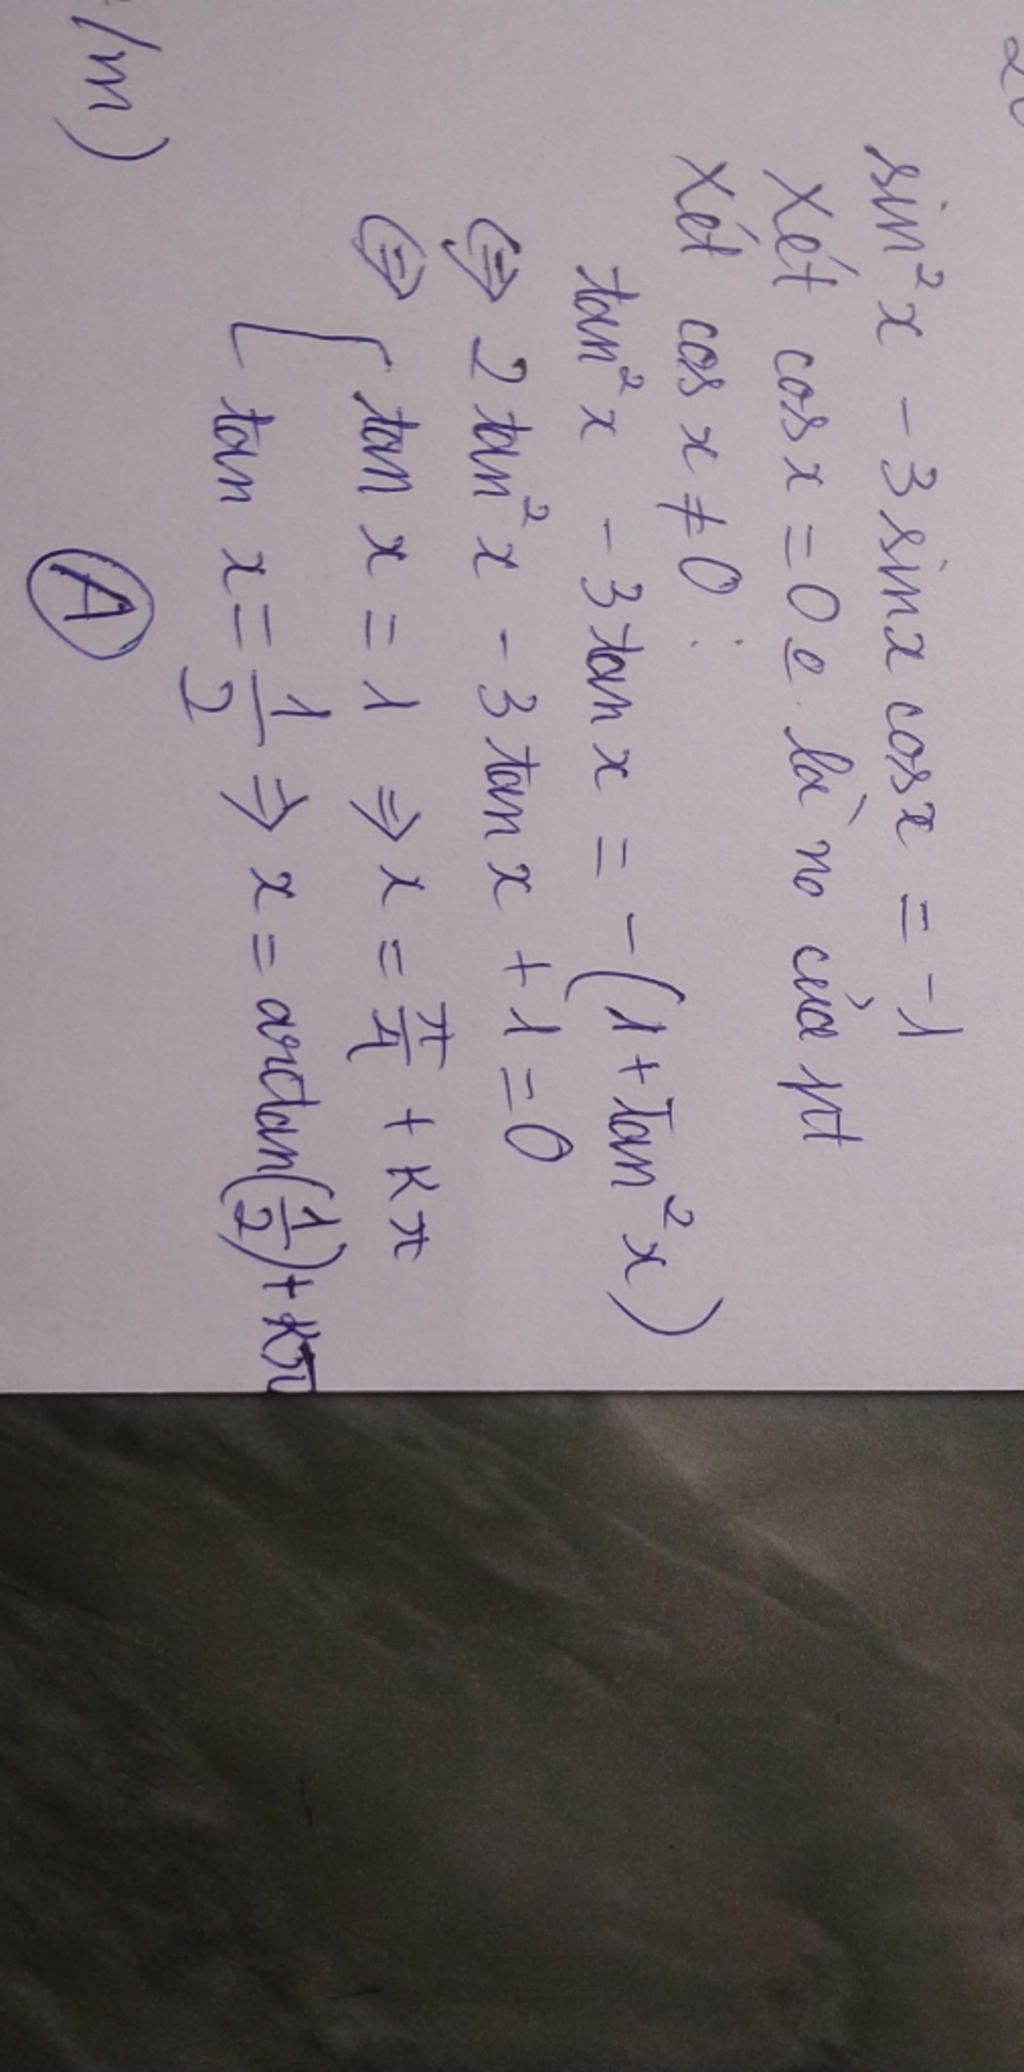 sin²x - 3sinx cosx = -1
Xét cosx = 0 o là no của pt
Xét cos x ≠ 0 :
tan²x - 3tanx = -(1 + tan²x)
⇔ 2tan²x - 3tanx + 1 = 0
⇔ [ tan x = 1 ⇒ x = π/4 + kπ
tan x = 1/2 ⇒ x = arctan(1/2) + kπ
/m)
A